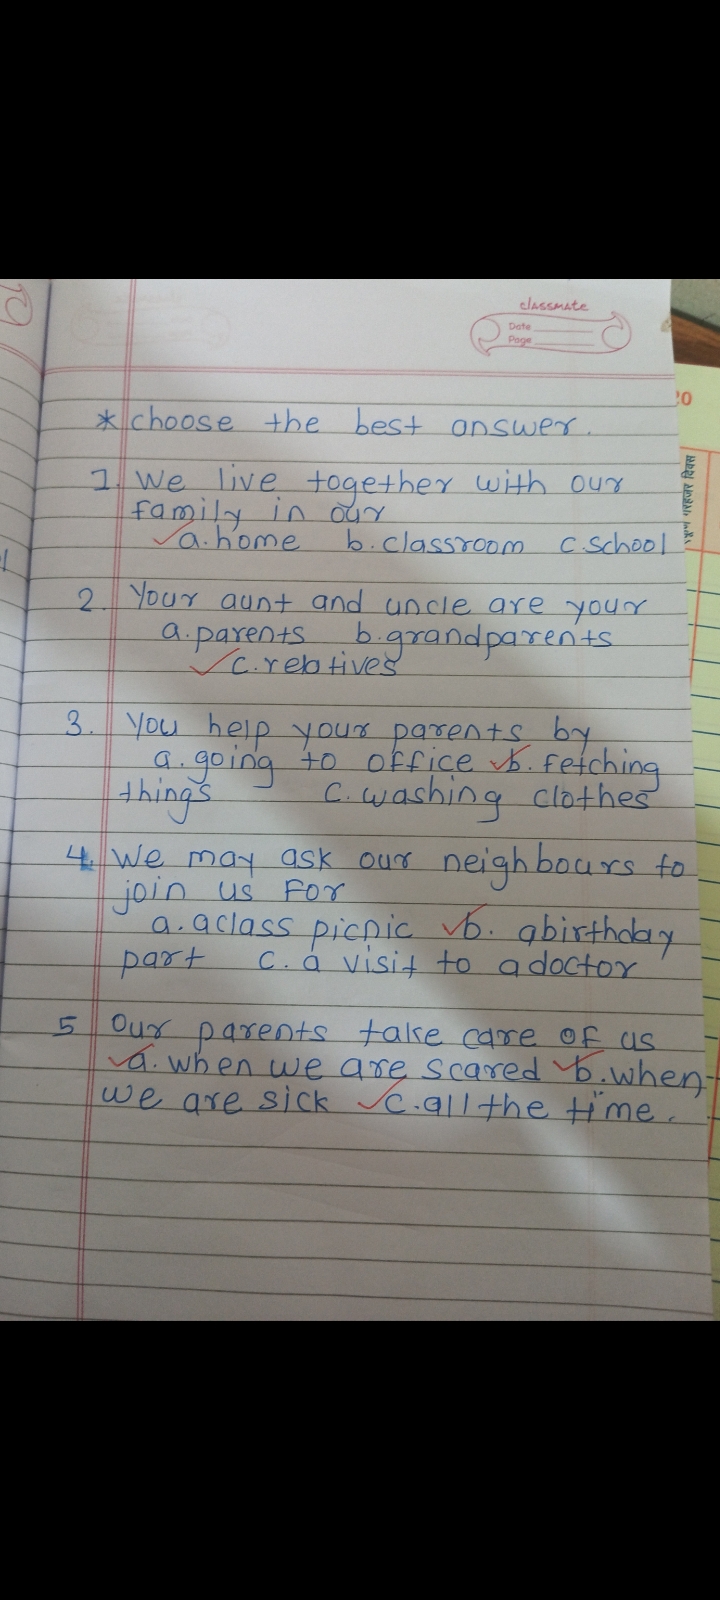 classmate
Date
Page
* choose the best answer.
1. We live together with our
family in our
✓a.home b.classroom c.school
2. Your aunt and uncle are your
a.parents b.grandparents
✓c.relatives
3. You help your parents by
a.going to office ✓b.fetching
things c.washing clothes
4. We may ask our neighbours to
join us For
a.aclass picnic ✓b. abirthday
part c. a visit to adoctor
5 Our parents take care OF us
✓a.when we are scared ✓b.when
we are sick ✓c.all the time.
20